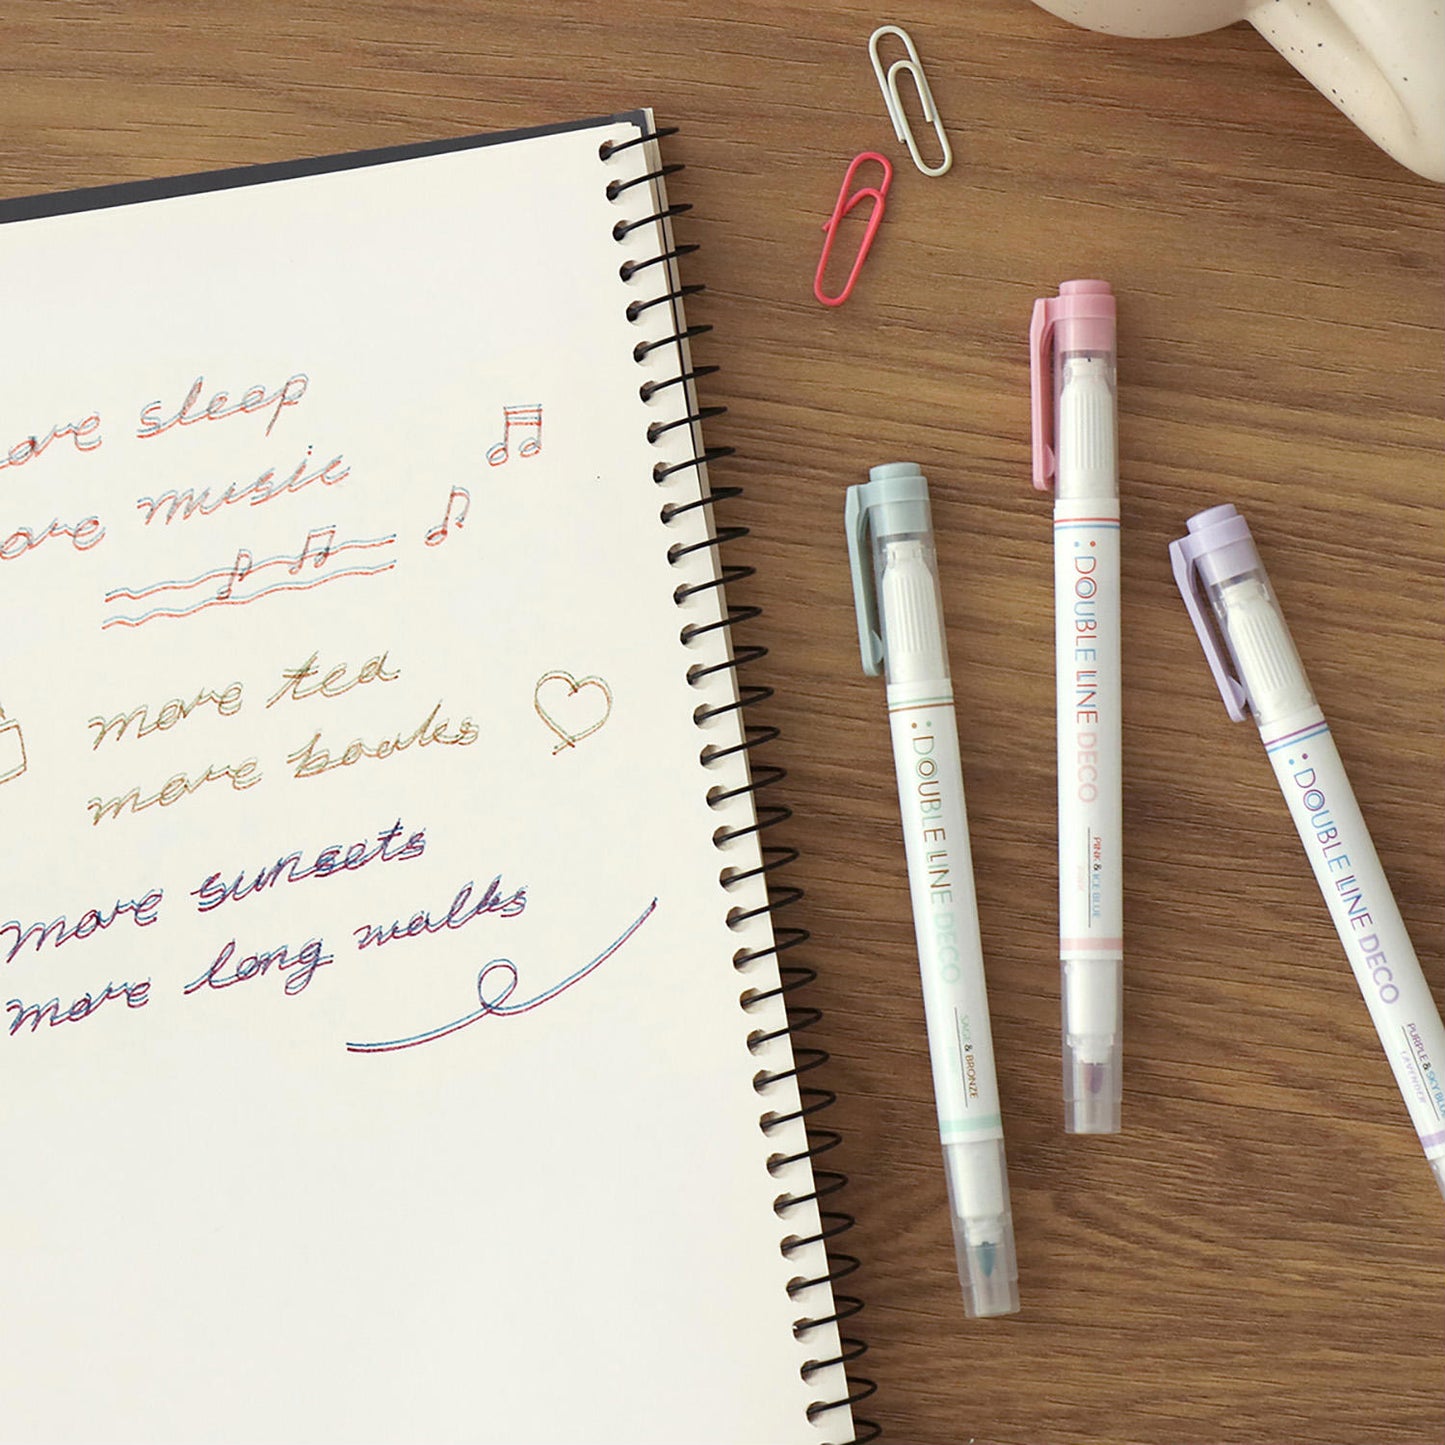 more sleep
more music
more tea
more books
more sunsets
more long walks
:DOUBLE LINE DECO
SAGE & BRONZE
:DOUBLE LINE DECO
PINK & ICE BLUE
:DOUBLE LINE DECO
PURPLE & SKY BLUE
LAVENDER